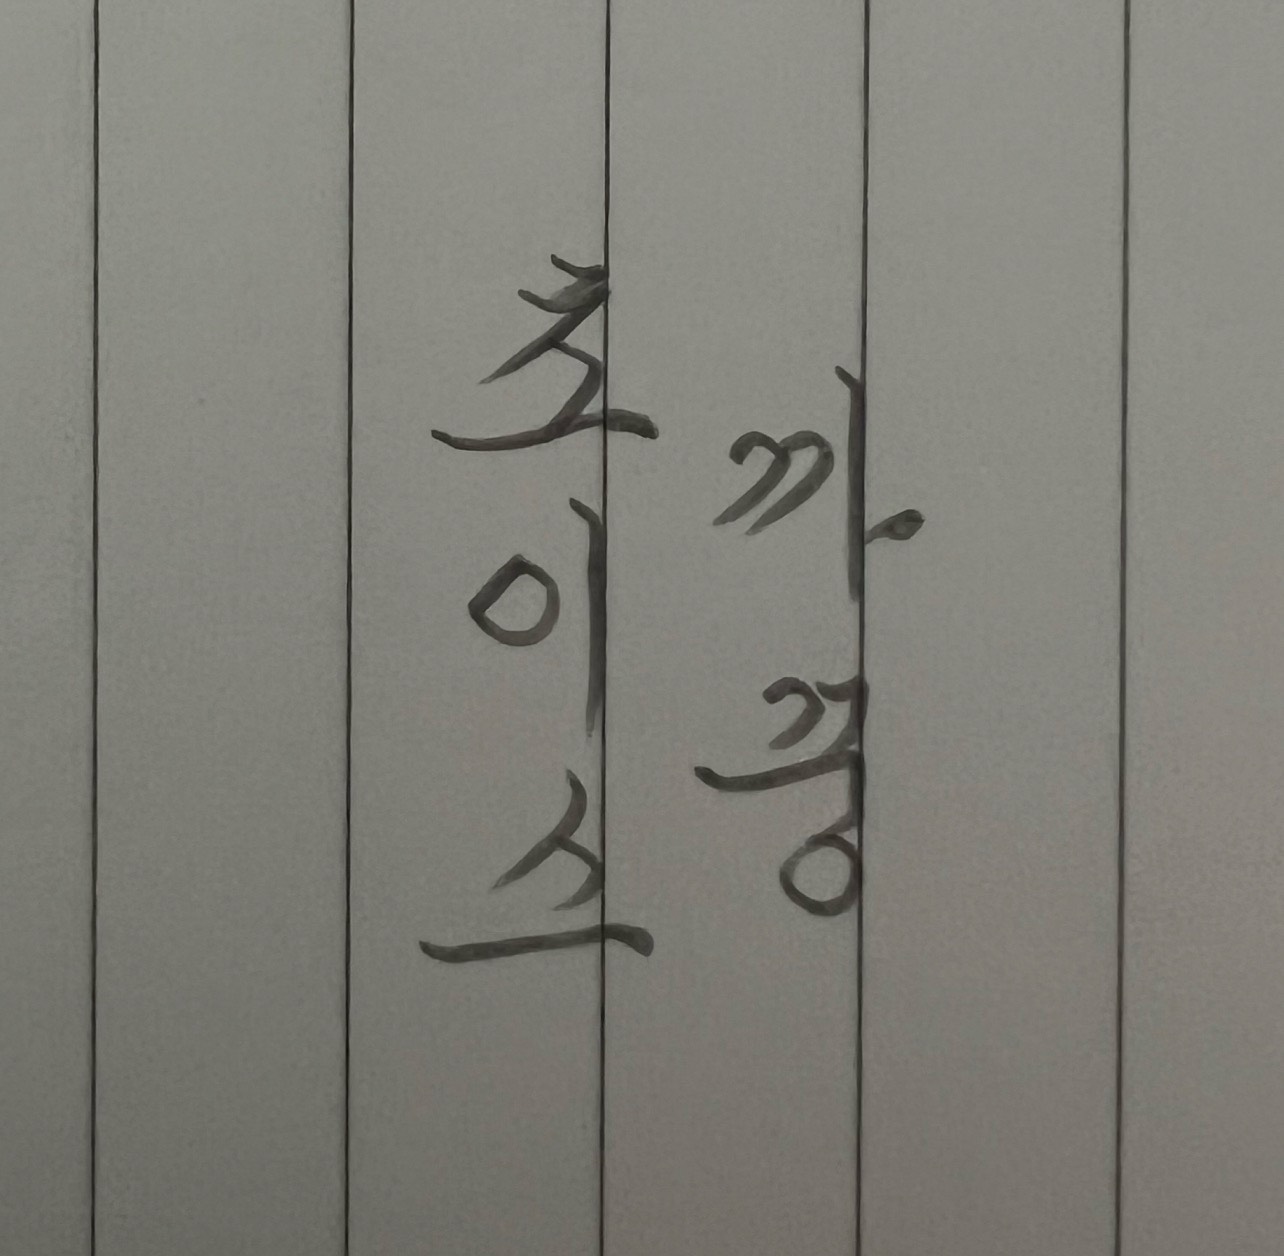 초이스
까꿍